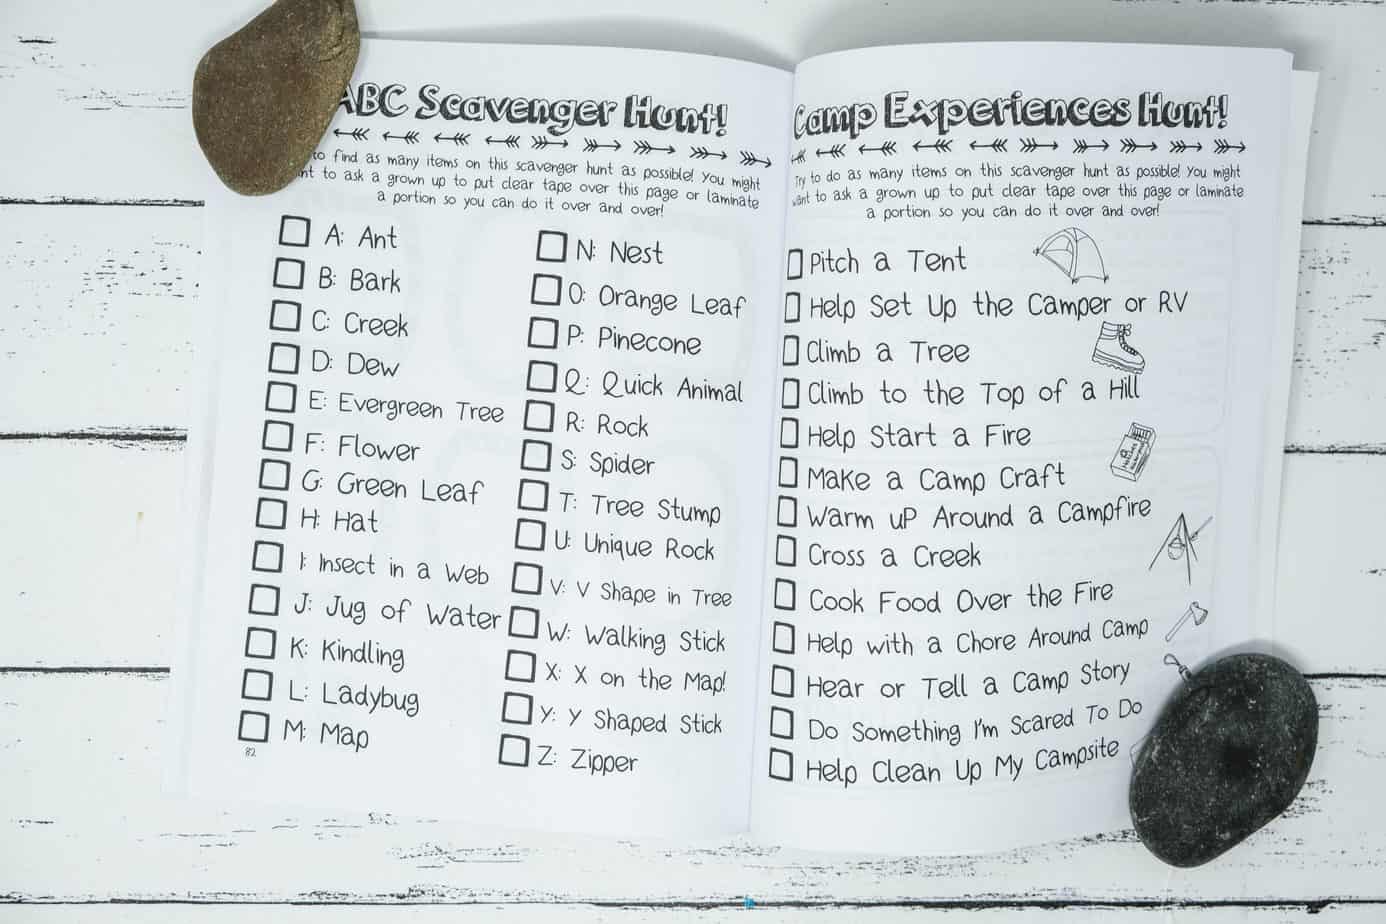 ABC Scavenger Hunt!
to find as many items on this scavenger hunt as possible! You might
to ask a grown up to put clear tape over this page or laminate
a portion so you can do it over and over!
A: Ant
B: Bark
C: Creek
D: Dew
E: Evergreen Tree
F: Flower
G: Green Leaf
H: Hat
I: Insect in a Web
J: Jug of Water
K: Kindling
L: Ladybug
M: Map
N: Nest
O: Orange Leaf
P: Pinecone
Q: Quick Animal
R: Rock
S: Spider
T: Tree Stump
U: Unique Rock
V: V Shape in Tree
W: Walking Stick
X: X on the Map!
Y: Y Shaped Stick
Z: Zipper
82
Camp Experiences Hunt!
Try to do as many items on this scavenger hunt as possible! You might
want to ask a grown up to put clear tape over this page or laminate
a portion so you can do it over and over!
Pitch a Tent
Help Set Up the Camper or RV
Climb a Tree
Climb to the Top of a Hill
Help Start a Fire
Make a Camp Craft
Warm up Around a Campfire
Cross a Creek
Cook Food Over the Fire
Help with a Chore Around Camp
Hear or Tell a Camp Story
Do Something I'm Scared To Do
Help Clean Up My Campsite